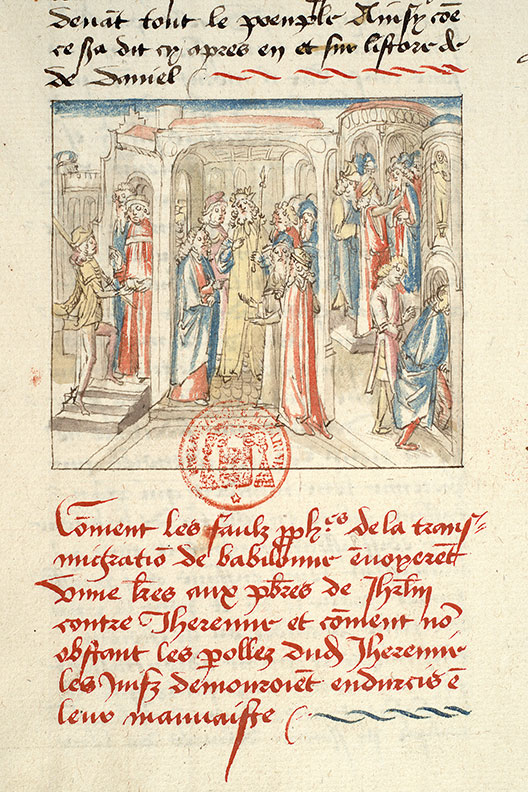 devāt tout le poeuple Ainsy cōe
ce sa dit cy apres en et sur listore de
de Daniel
Cōment les faulz pphēs de la trans-
migratiō de babilonne envoyerēt
vnne lr̄es aux pbr̄es de Jhrlm̄
contre Jheremie et cōment nō
obstant les parollez dud Jheremie
les Juifz demouroiēt endurcis ē
leur mauuaiste